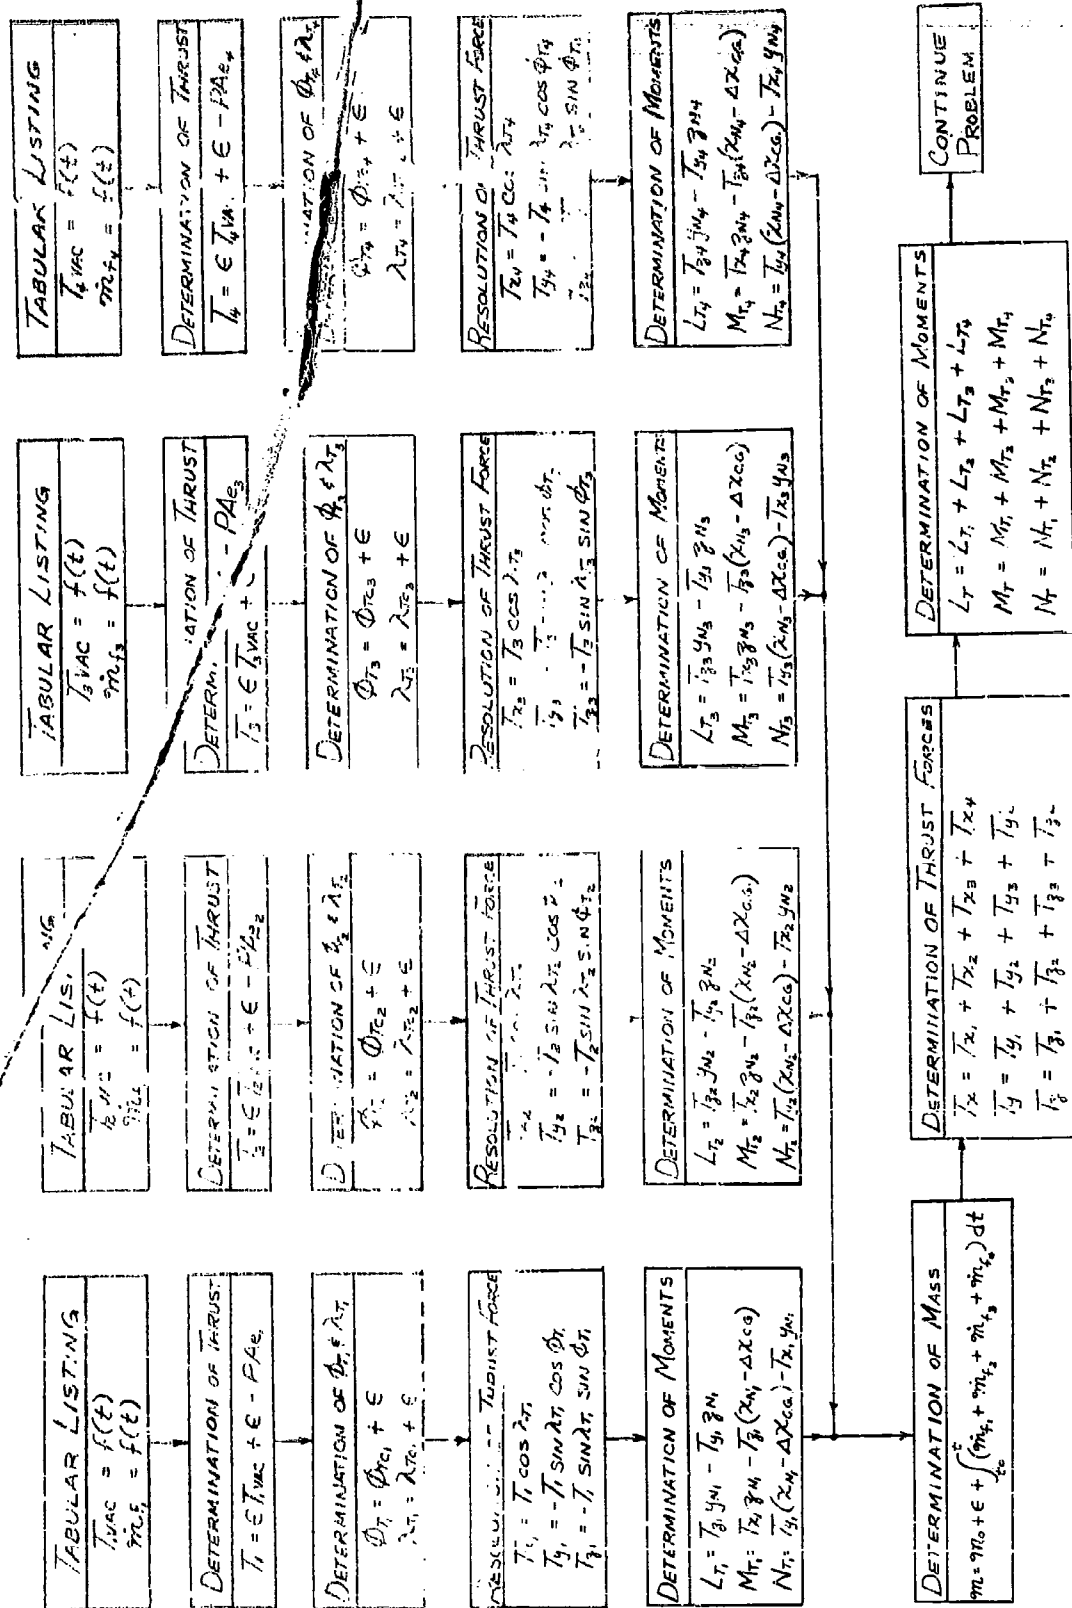 TABULAR LISTING
T₁VAC = f(t)
ṁf₁ = f(t)
DETERMINATION OF THRUST
T₁ = ϵ T₁VAC + ϵ - PAe₁
DETERMINATION OF ΦT₁ & λT₁
ΦT₁ = ΦTC₁ + ϵ
λT₁ = λTC₁ + ϵ
THRUST FORCE
Tx₁ = T₁ COS λT₁
Ty₁ = -T₁ SIN λT₁ COS ΦT₁
Tz₁ = -T₁ SIN λT₁ SIN ΦT₁
DETERMINATION OF MOMENTS
LT₁ = Tz₁ yN₁ - Ty₁ zN₁
MT₁ = Tx₁ zN₁ - Tz₁ (xN₁ - ΔXCG)
NT₁ = Ty₁ (xN₁ - ΔXCG) - Tx₁ yN₁
TABULAR LIS
= f(t)
= f(t)
DETERMINATION OF THRUST
+ ϵ - PAe₂
NATION OF & λT₂
= ΦTC₂ + ϵ
= λTC₂ + ϵ
RESOLUTION OF THRUST FORCE
Ty₂ = -T₂ SIN λT₂ COS
Tz₂ = -T₂ SIN λT₂ SIN ΦT₂
DETERMINATION OF MOMENTS
LT₂ = Tz₂ yN₂ - Ty₂ zN₂
MT₂ = Tx₂ zN₂ - Tz₂ (xN₂ - ΔXC.G.)
NT₂ = Ty₂ (xN₂ - ΔXCG) - Tx₂ yN₂
TABULAR LISTING
T₃VAC = f(t)
ṁf₃ = f(t)
DETERM ATION OF THRUST
T₃ = ϵ T₃VAC + - PAe₃
DETERMINATION OF ΦT₃ & λT₃
ΦT₃ = ΦTC₃ + ϵ
λT₃ = λTC₃ + ϵ
RESOLUTION OF THRUST FORCE
Tx₃ = T₃ COS λT₃
Ty₃
Tz₃ = -T₃ SIN λT₃ SIN ΦT₃
DETERMINATION OF MOMENTS
LT₃ = Tz₃ yN₃ - Ty₃ zN₃
MT₃ = Tx₃ zN₃ - Tz₃ (xN₃ - ΔXCG)
NT₃ = Ty₃ (xN₃ - ΔXC.G.) - Tx₃ yN₃
TABULAR LISTING
T₄VAC = f(t)
ṁf₄ = f(t)
DETERMINATION OF THRUST
T₄ = ϵ T₄VAC + ϵ - PAe₄
NATION OF ΦT₄ & λT₄
ΦT₄ = ΦTC₄ + ϵ
λT₄ = + ϵ
RESOLUTION OF THRUST FORCE
Tx₄ = T₄ COS λT₄
Ty₄ = -T₄ λT₄ COS ΦT₄
Tz₄ SIN ΦT₄
DETERMINATION OF MOMENTS
LT₄ = Tz₄ yN₄ - Ty₄ zN₄
MT₄ = Tx₄ zN₄ - Tz₄ (xN₄ - ΔXCG)
NT₄ = Ty₄ (xN₄ - ΔXCG) - Tx₄ yN₄
DETERMINATION OF MASS
m = m₀ + ϵ + ∫ₜ₀ᵗ (ṁf₁ + ṁf₂ + ṁf₃ + ṁf₄) dt
DETERMINATION OF THRUST FORCES
Tx = Tx₁ + Tx₂ + Tx₃ + Tx₄
Ty = Ty₁ + Ty₂ + Ty₃ + Ty₄
Tz = Tz₁ + Tz₂ + Tz₃ + Tz₄
DETERMINATION OF MOMENTS
LT = LT₁ + LT₂ + LT₃ + LT₄
MT = MT₁ + MT₂ + MT₃ + MT₄
NT = NT₁ + NT₂ + NT₃ + NT₄
CONTINUE
PROBLEM